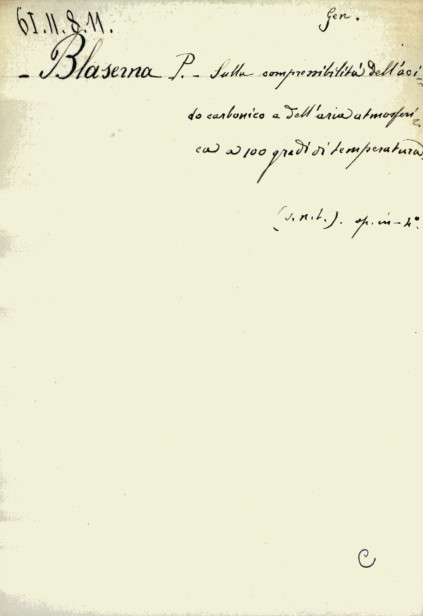 Gen.
61.II.8.11.
- Blaserna P. - Sulla compressibilità dell'aci-
do carbonico e dell'aria atmosferi-
ca a 100 gradi di temperatura
(s.n.t.). op. in-4º.
C